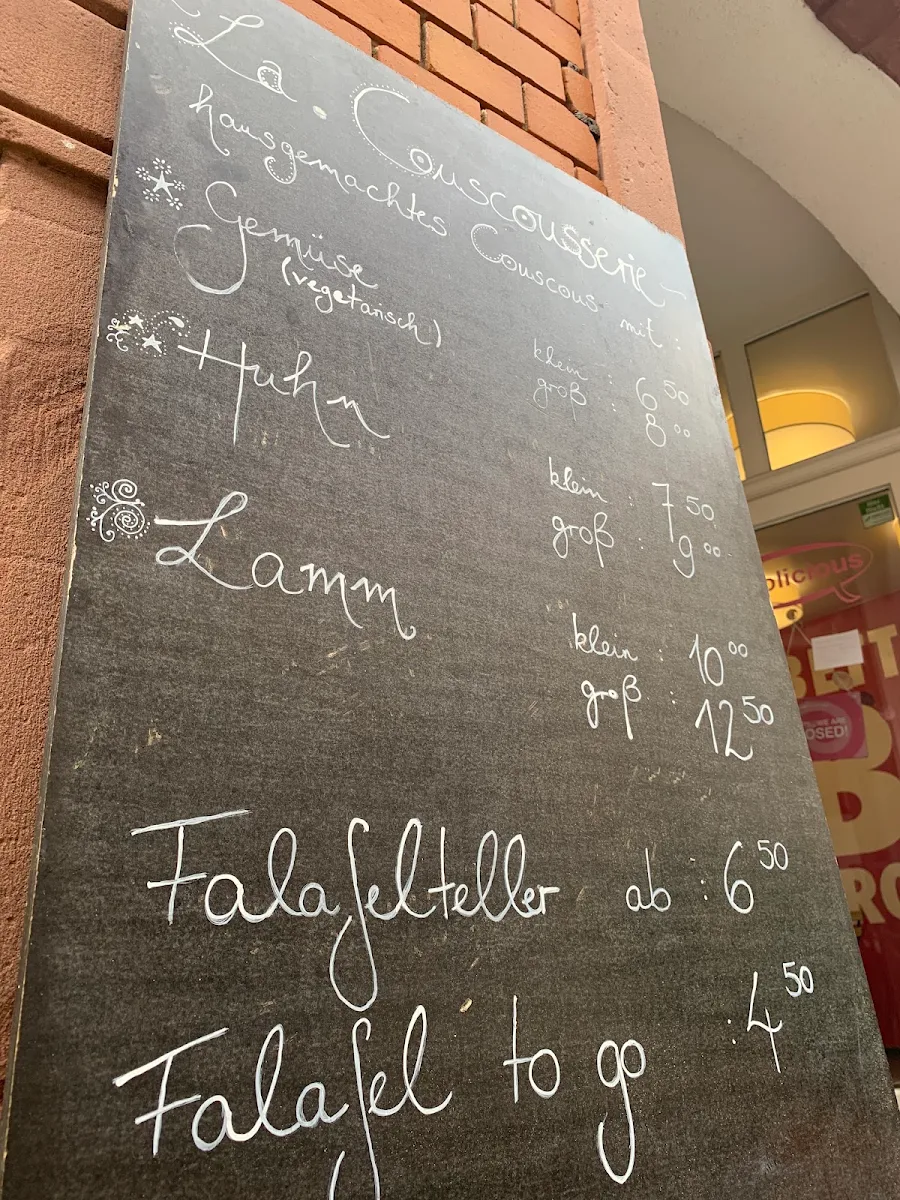 La Couscousserie
hausgemachtes Couscous mit :
Gemüse
(vegetarisch)
klein : 6 50
groß : 8 00
Huhn
klein : 7 50
groß : 9 00
Lamm
klein : 10 00
groß : 12 50
Falafelteller ab : 6 50
Falafel to go : 4 50
licious
OSED!